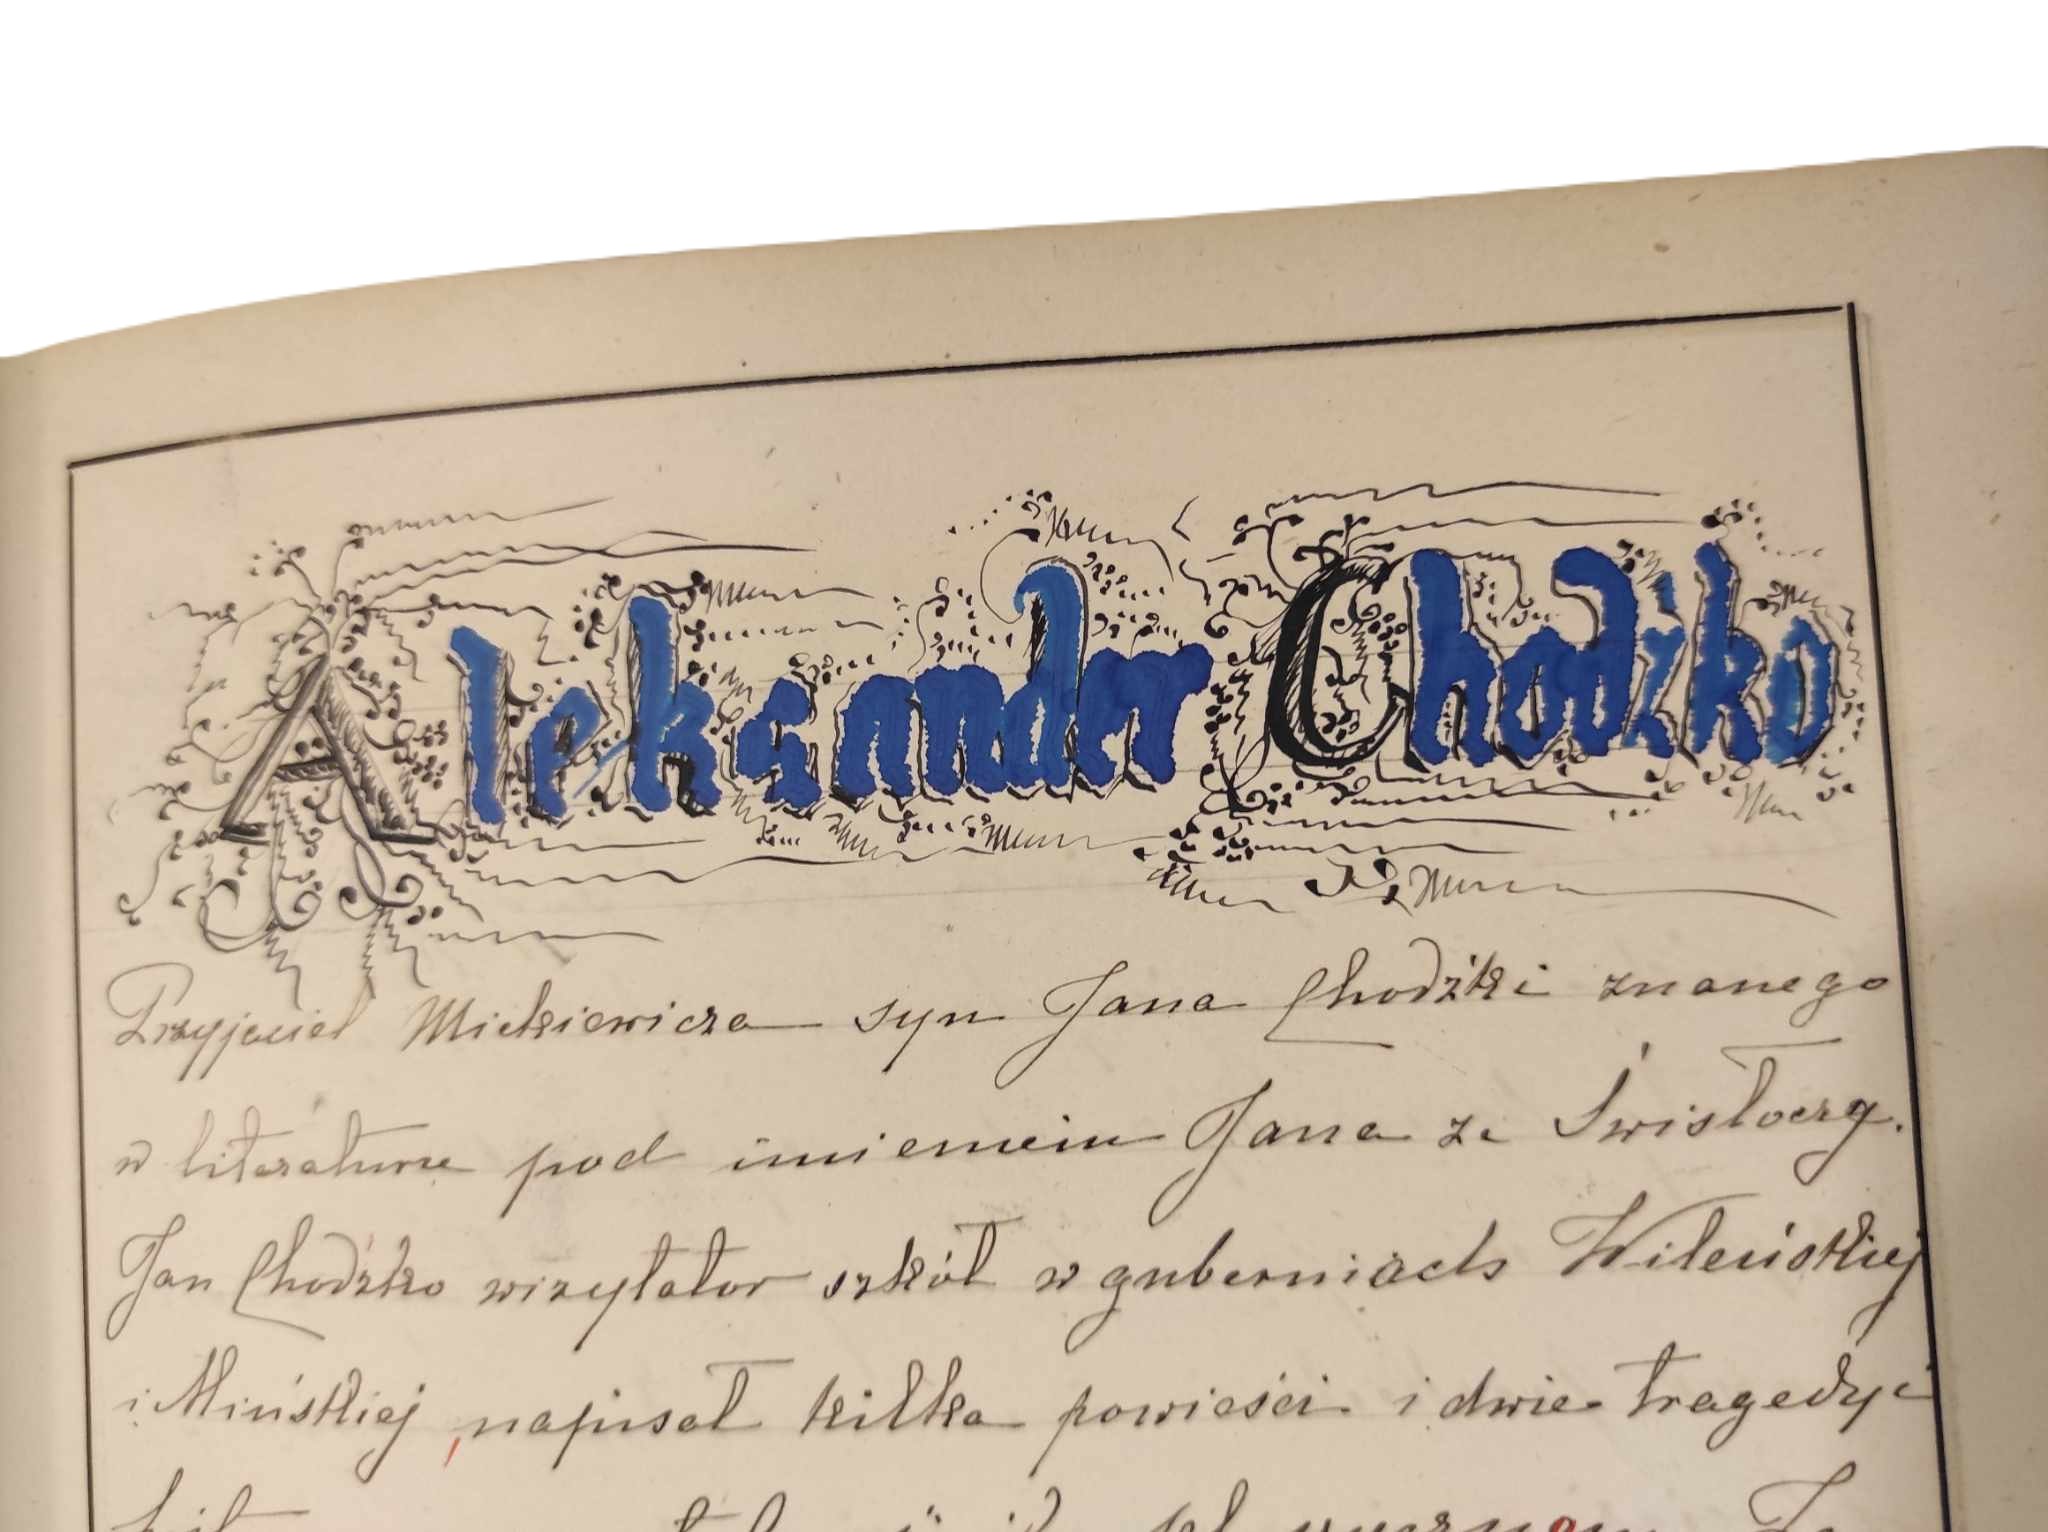 Aleksander Chodźko
Przyjaciel Mickiewicza syn Jana Chodźki znanego
w literaturze pod imieniem Jana ze Świsłoczy.
Jan Chodźko wizytator szkół w guberniach Wileńskiej
i Mińskiej, napisał kilka powieści i dwie tragedye